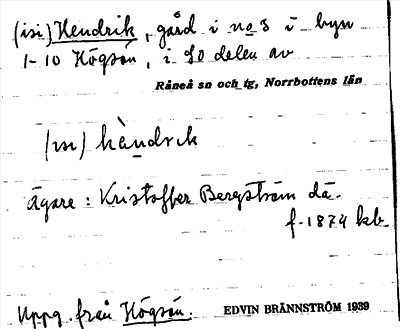 (isi) Hendrik, gård i no 3 i byn
1-10 Högsön, i SO delen av
Råneå sn och tg, Norrbottens län
(ısı) hàndrık
ägare: Kristoffer Bergström då.
f. 1874 kb.
Uppg. från Högsön. EDVIN BRÄNNSTRÖM 1939